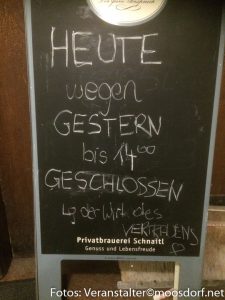 HEUTE
wegen
GESTERN
bis 14⁰⁰
GESCHLOSSEN
Lg der Wirt des
VERTRAUENS
Privatbrauerei Schnaitl
Genuss und Lebensfreude
Fotos: Veranstalter©moosdorf.net